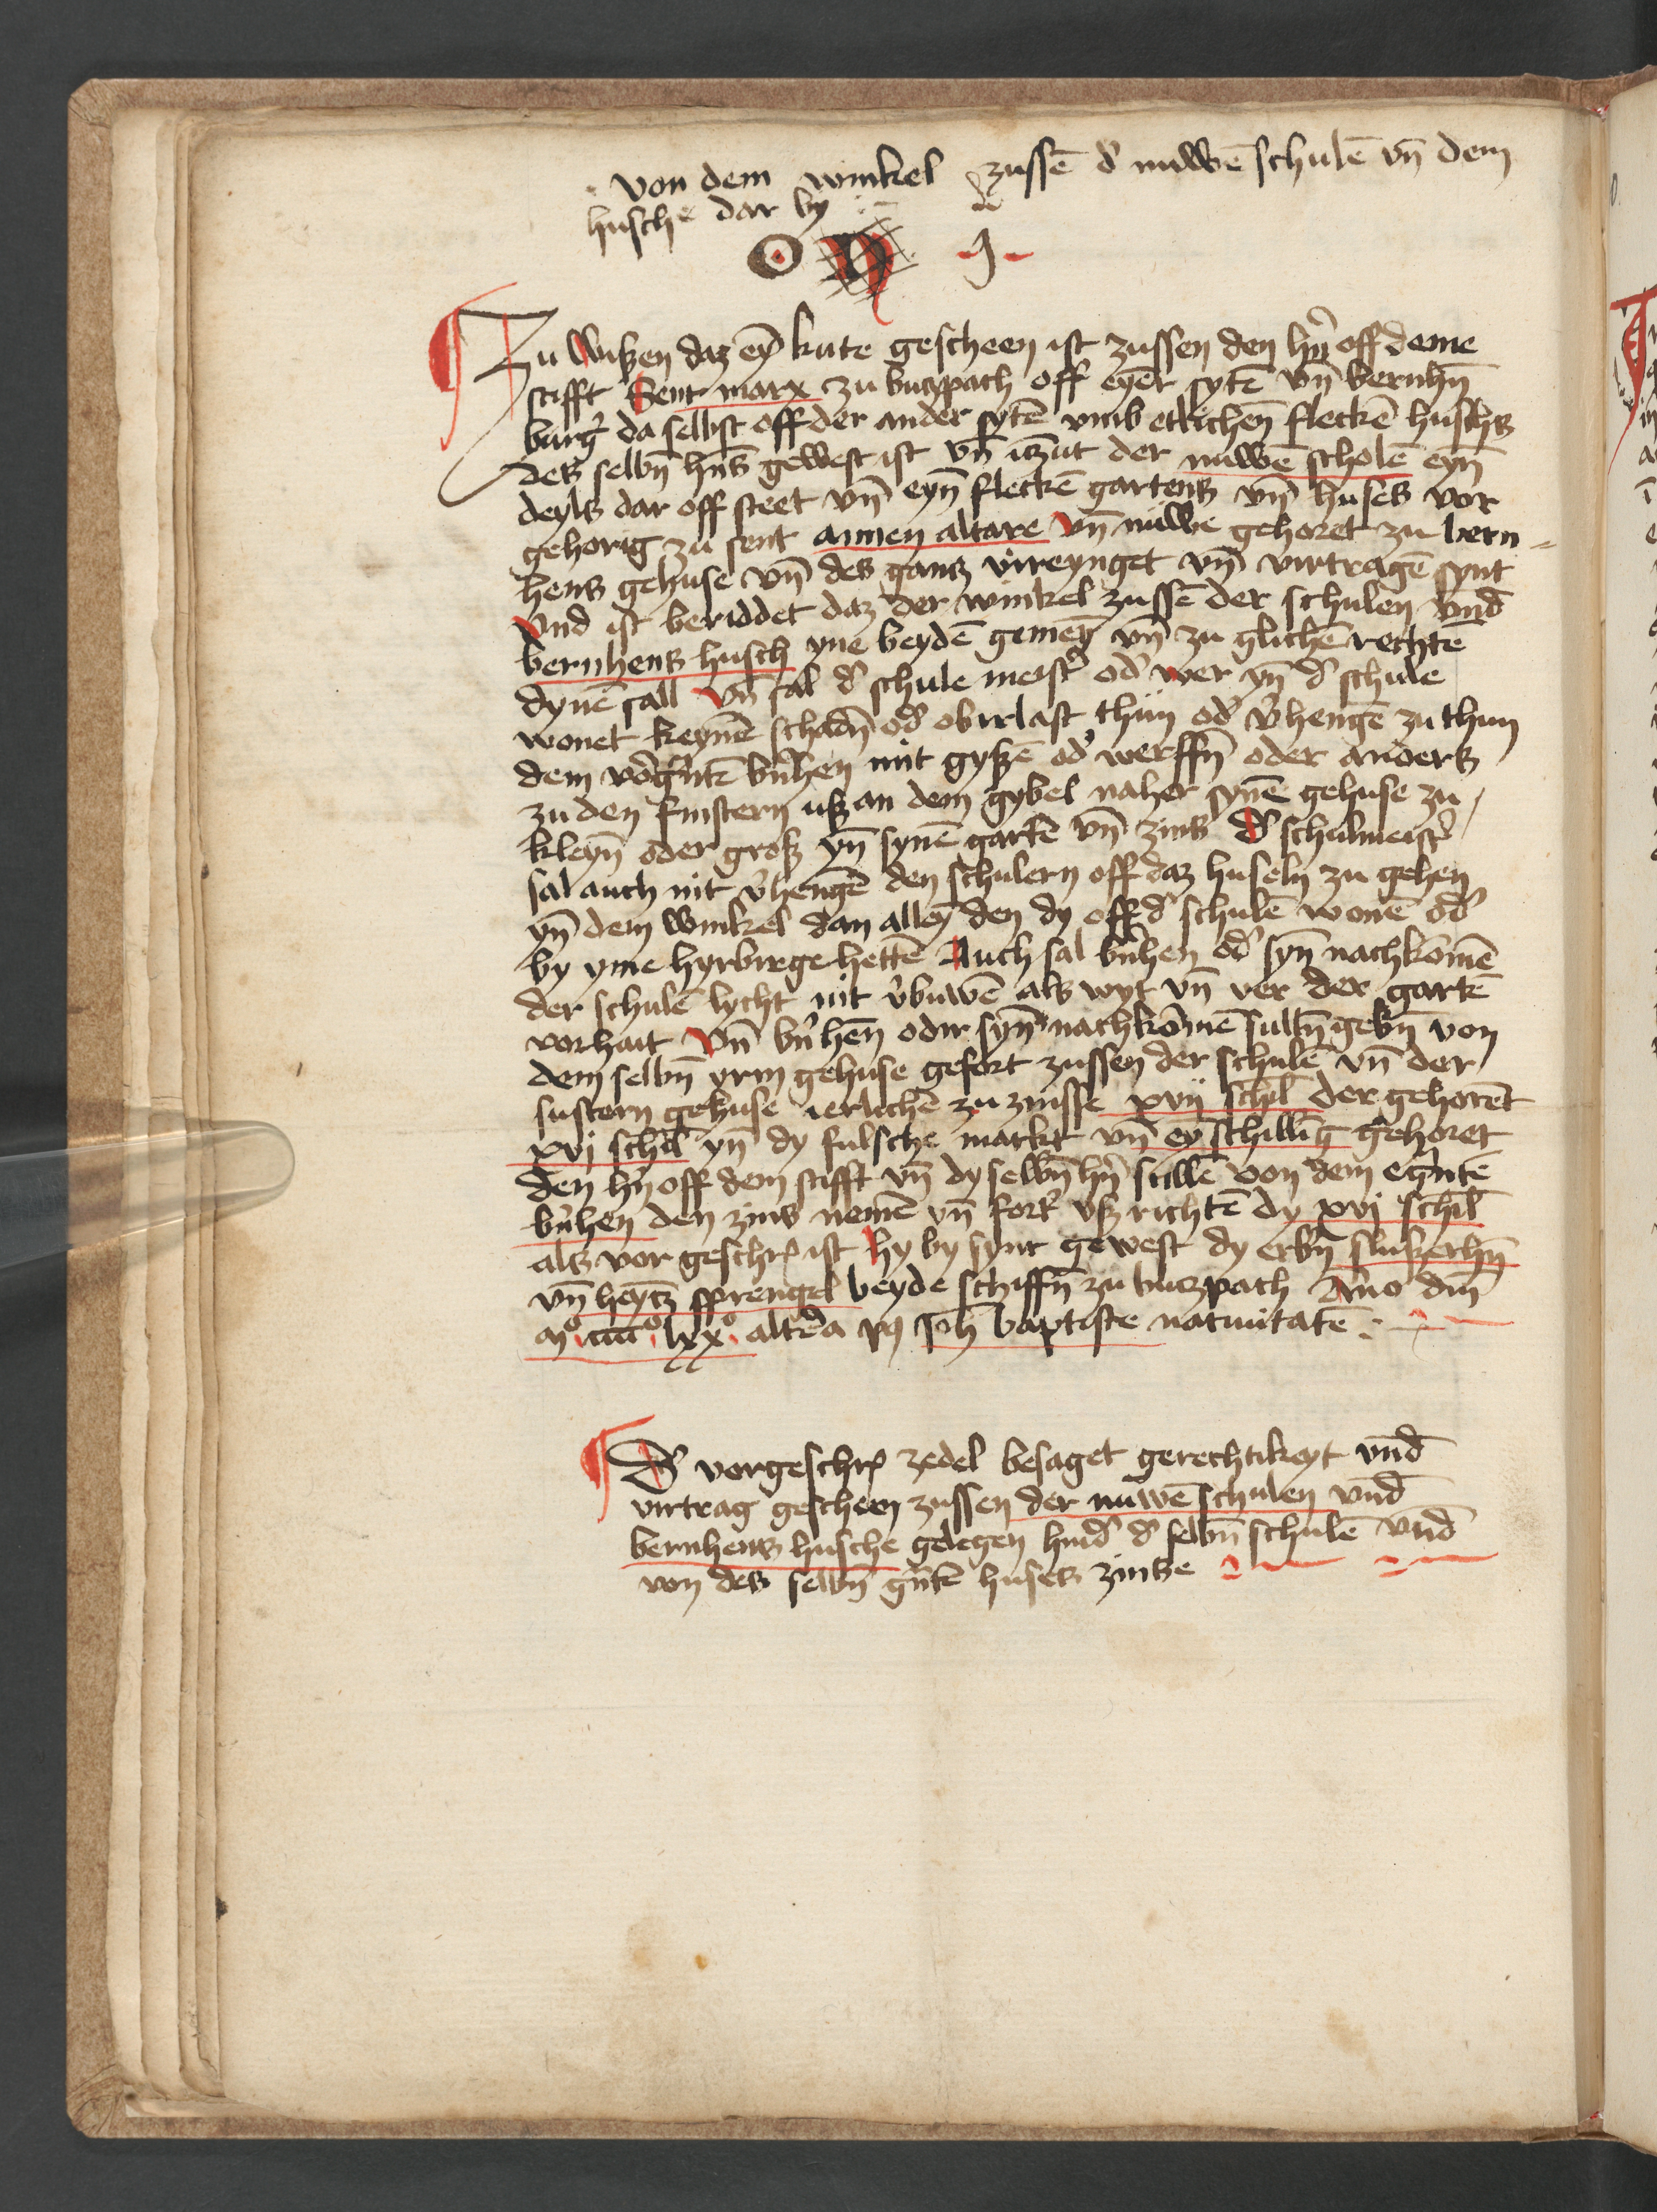 von dem winkel zussē d' nuwē schulē vn̄ dem
husche dar by
O N J
Zu wißen daz eȳ kute gescheen ist zussen den hn̄ off deme
stifft Sent marx zu butzpach off eyēr sytē vn̄ bernhn̄
burg' da selbist off der ander sytē vmb etlichen̄ fleckē huschs
des selbn̄ hn̄s gewest ist vn̄ itzūt der nuwē scholē eyn̄
deyls dar off steet vn̄ eyn̄ fleckē gartens vn̄ huses vor
gehorig zu sent annen altare vn̄ nuwe gehoret zu bern-
hens gehuse vn̄ des gantz vireynget vn̄ virtragē synt
vnd ist beriddet daz der winkel zussē der schulen vnd̄
bernhens husch yne beydē gemeȳ vn̄ zu glichē rechtē
dynē sall vn̄ sal d' schule meist' od' wer yn̄ d' schule
wonet keynēr schadn̄ od' obirlast thun od' v'hengē zu thun
dem vorḡntē b'nhen mit gyßē od' werffn̄ oder anders
zu den finstern uß an dem gybel naher synē gehuse zu
kleyn̄ oder groß yn̄ synē gartē vn̄ zins D' schulmeist'
sal auch nit v'hengē den schulern off daz huseln zu gehen
yn̄ dem winkel dan alleȳ den dy off d' schulē wonē od'
by yme hyrbirge hettē Auch sal b'nhen od' syn̄ nachkōmē
der schulē lycht nit v'buwē als wyt vn̄ ver der gartē
vorhait Vn̄ b'nhen̄ odir syn̄ nachkōmē sultn̄ gebn̄ von
dem selbn̄ yrm gehuse gefort zussen der schulē vn̄ der
sustern gehuse ierlichē zu zinsse xvij schil̄ der gehorēt
xvj schil̄ yn̄ dy fulsche markt vn̄ eȳ schillīg gehoret
den hn̄ off dem stifft vn̄ dy selbn̄ hn̄ sullē von dem eḡntē
b'nhen den zins nemē vn̄ fort' vß richtē dy xvj schil̄
als vor geschr' ist hy by synt gewest dy erbn̄ slukerhn̄
vn̄ heytz sprengel beyde schiffn̄ zu butzpach Anno dm̄
mº iiiiº lxxº altera p9 Joh baptiste natiuitatē
D' vorgeschr' zedel besaget gerechtikeyt vnd̄
virtrag geschēn zussen der nuwē schulen vnd̄
bernhens husche gelegen hind' d' selbn̄ schulē vnd̄
von des selbn̄ ḡntē huses zinße